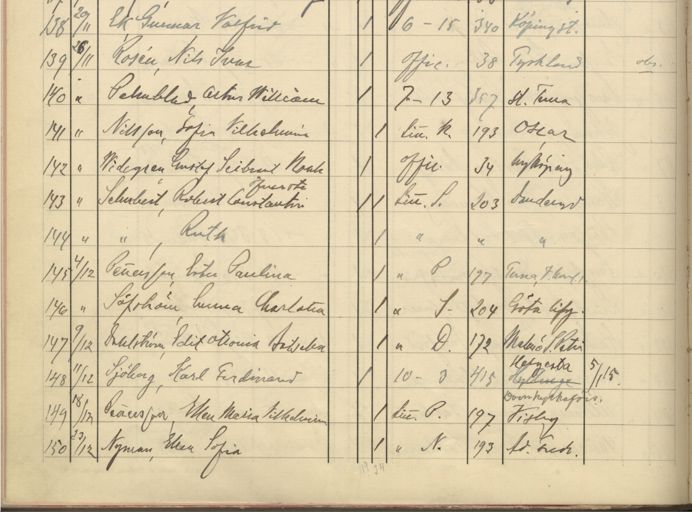 138 29/11 Ek Gunnar Valfrid 1 6-15 340 Köping st.
139 26/11 Rosén, Nils Ivar 1 Offic. 38 Tyskland obs.
140 " Palmblad, Artur William 1 7-13 357 st. Tuna
141 " Nilsson, Sofia Vilhelmina 1 Litt. N. 193 Oscar
142 " Widegren Gustaf Seibrut Noak 1 Offic. 34 Nyköping
143 " Schubert, Robert Constantin 1 1 Litt. S. 203 Danderyd
144 " " , Ruth 1 " " "
145 4/12 Petersson, Ester Paulina 1 " P 197 Tuna,
146 " Sjöholm, Emma Charlotta 1 " S. 204 Göta lifg.
147 9/12 Dahlström, Edit Otionia 1 " D. 172 Malmö S. Petri
148 11/12 Sjöberg, Karl Ferdinand 10-3 415 Helgesta 5/1 15.
Domkyrkoförs.
149 18/12 Petersson, Ellen Maria Vilhelmina 1 Litt. P. 197 Visby
150 23/12 Nyman, Ellen Sofia 1 " N. 193 Ad. Fredr.